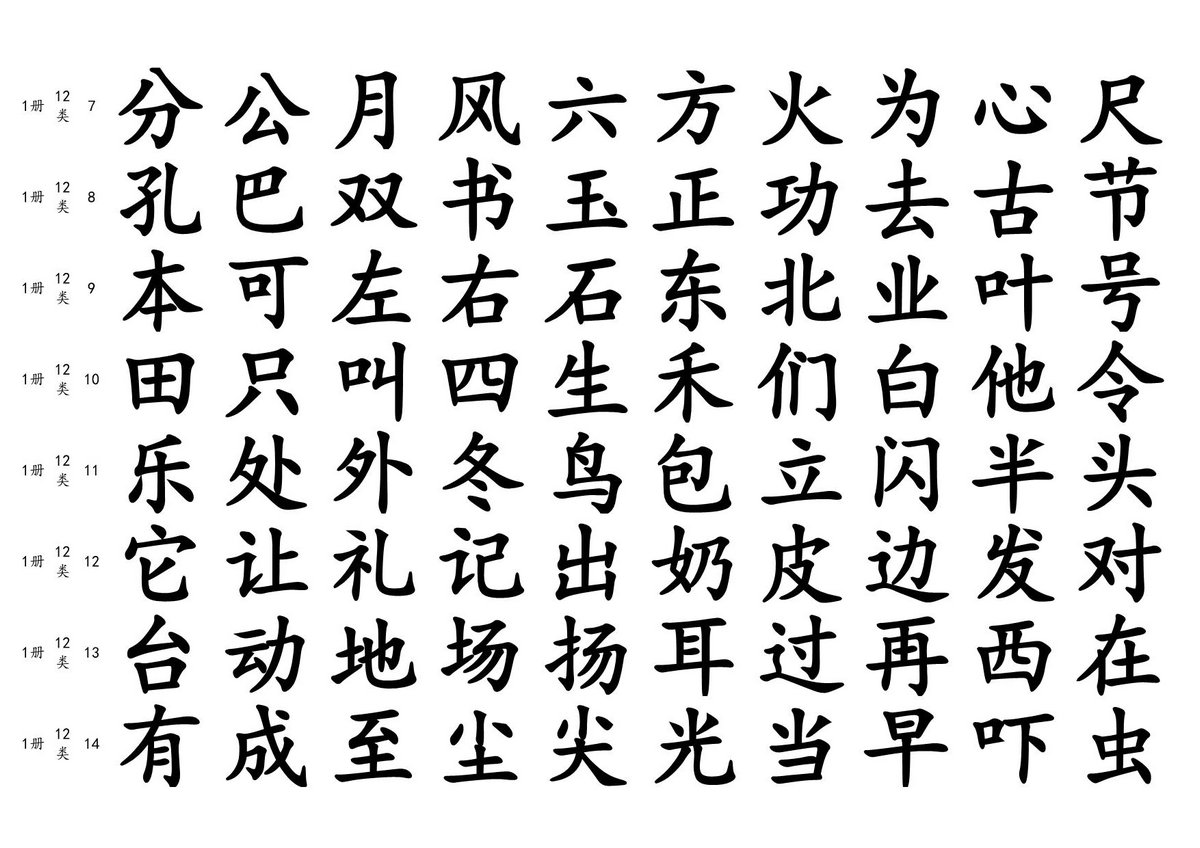 1册 12类 7 分 公 月 风 六 方 火 为 心 尺
1册 12类 8 孔 巴 双 书 玉 正 功 去 古 节
1册 12类 9 本 可 左 右 石 东 北 业 叶 号
1册 12类 10 田 只 叫 四 生 禾 们 白 他 令
1册 12类 11 乐 处 外 冬 鸟 包 立 闪 半 头
1册 12类 12 它 让 礼 记 出 奶 皮 边 发 对
1册 12类 13 台 动 地 场 扬 耳 过 再 西 在
1册 12类 14 有 成 至 尘 尖 光 当 早 吓 虫